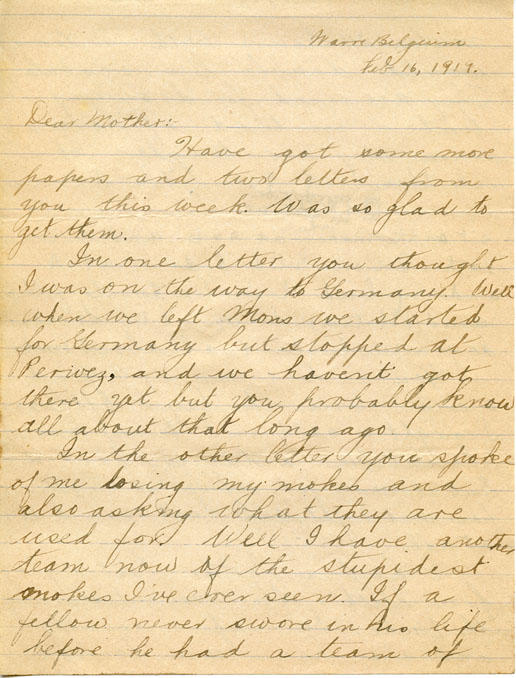 Wavre Belgium
Feb 16, 1919.
Dear Mother:-
Have got some more
papers and two letters from
you this week. Was so glad to
get them.
In one letter you thought
I was on the way to Germany. Well
when we left Mons we started
for Germany but stopped at
Perwez, and we havent got
there yet but you probably know
all about that long ago.
In the other letter you spoke
of me losing my mokes and
also asking what they are
used for. Well I have another
team now of the stupidest
mokes I've ever seen. If a
fellow never swore in his life
before he had a team of